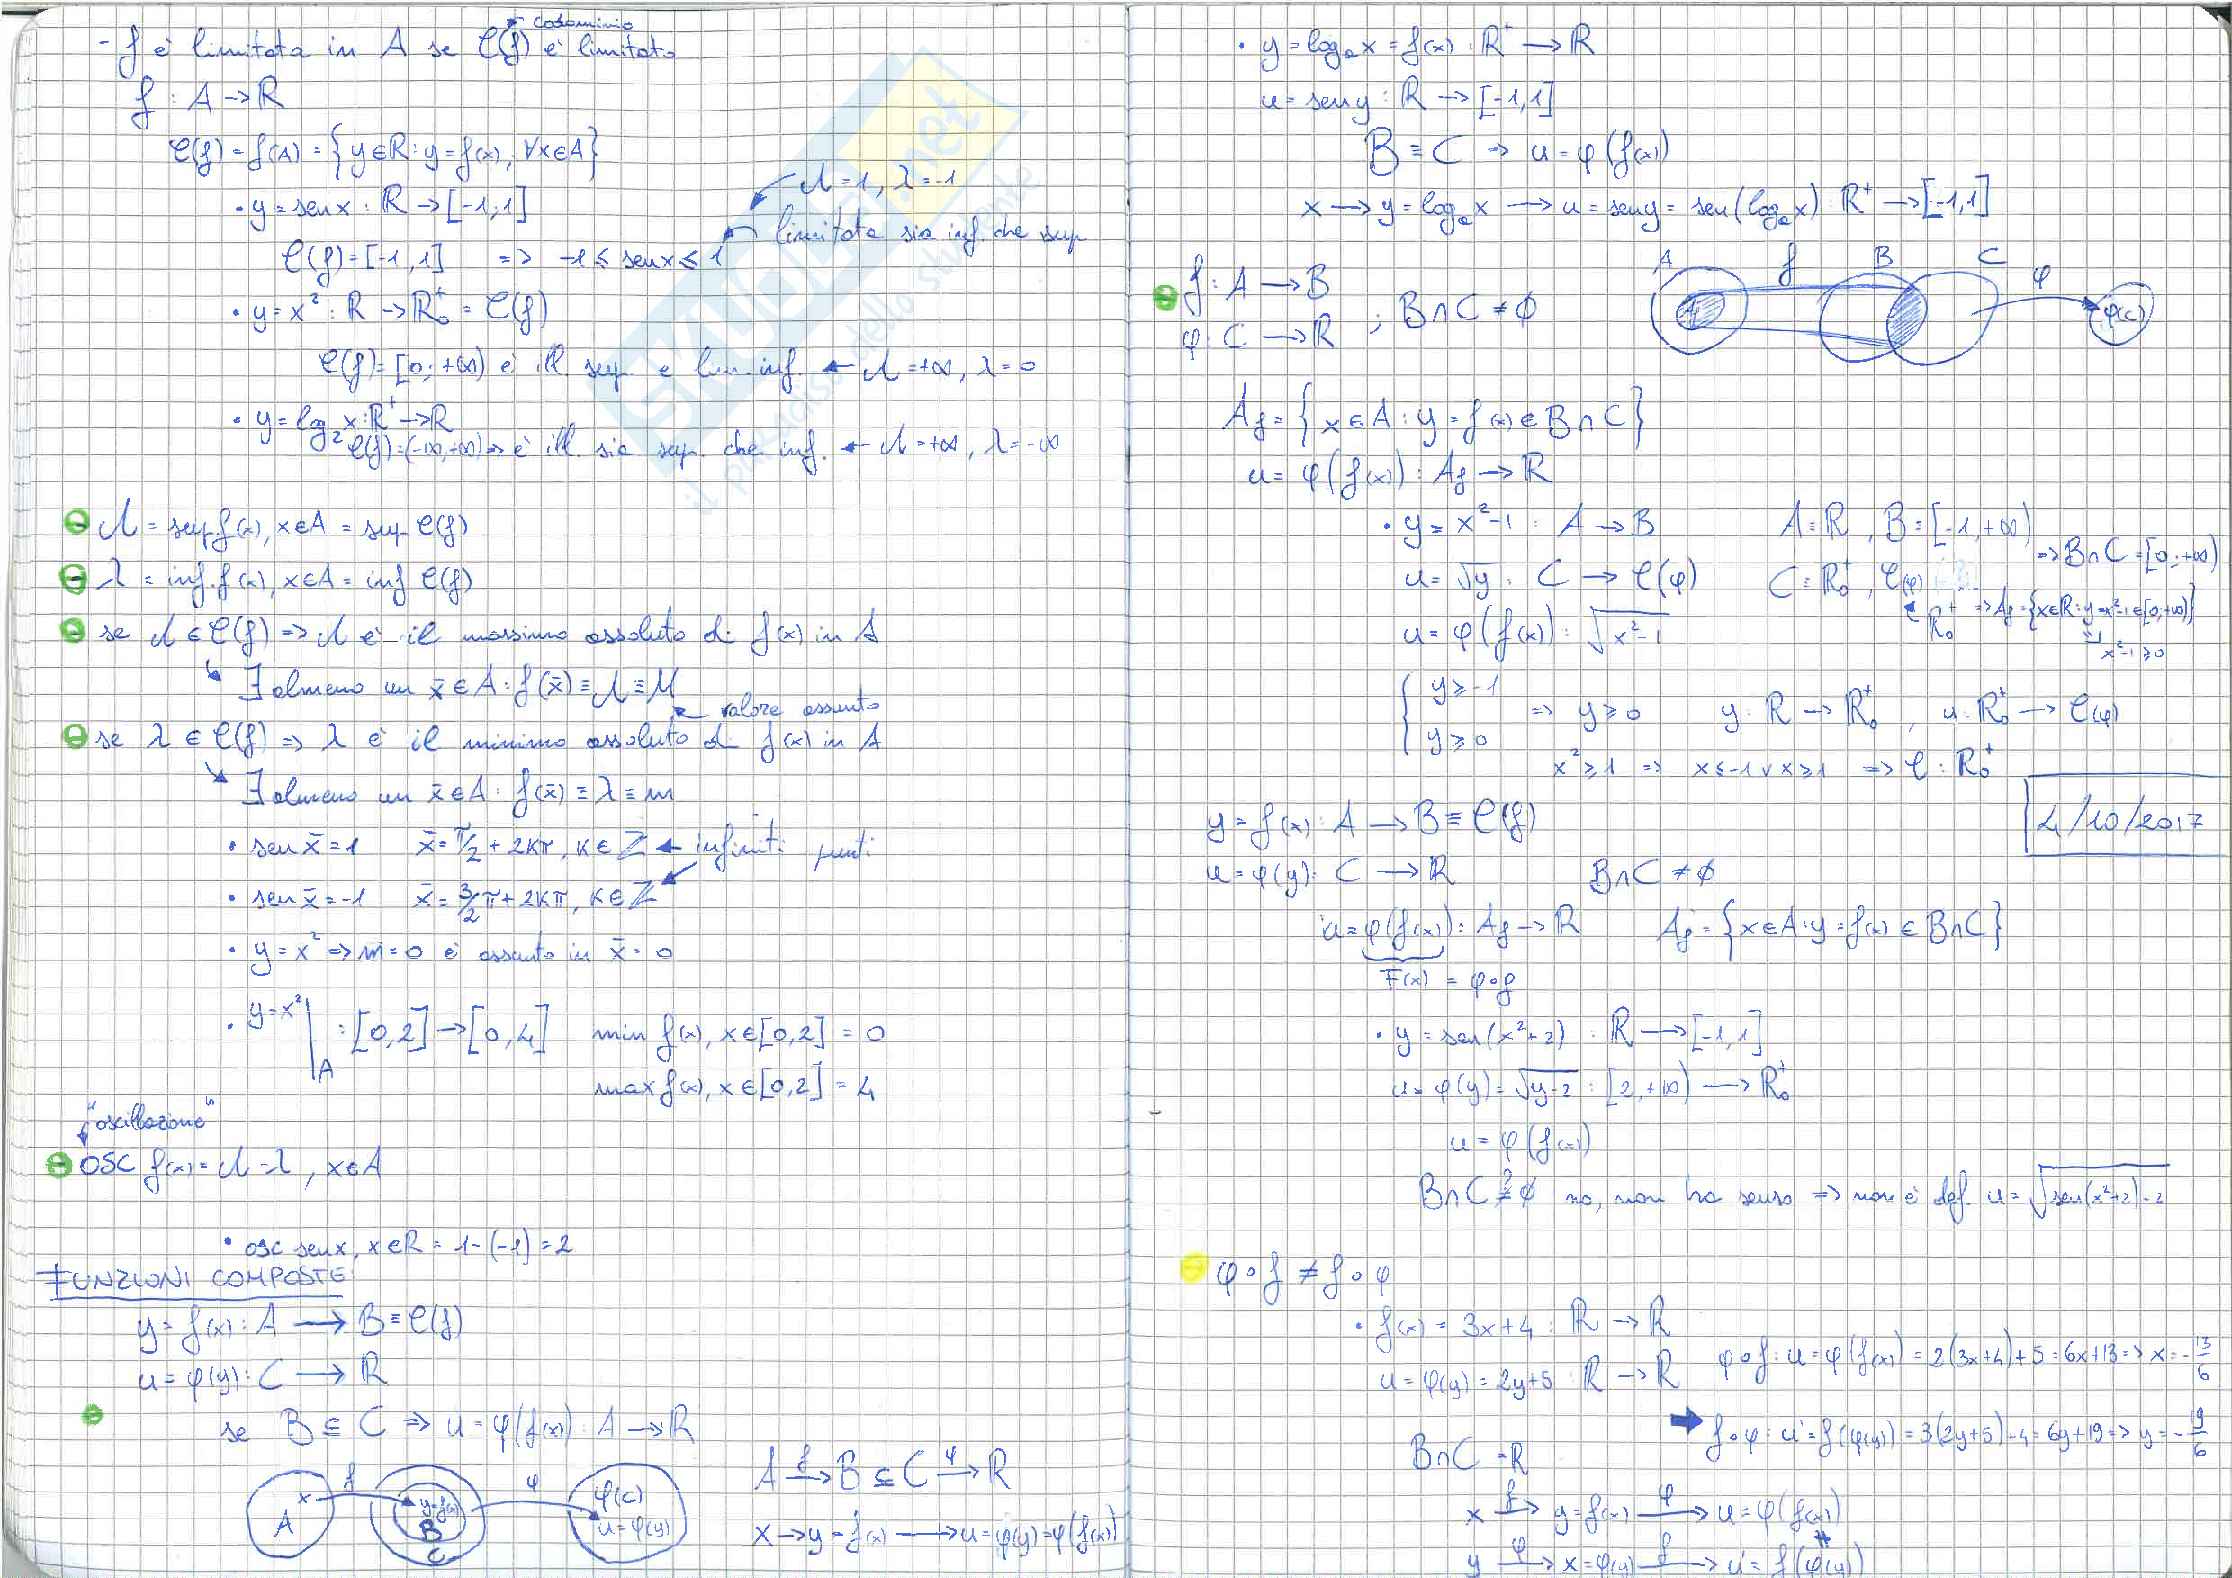 codominio
- f è limitata in A se C(f) è limitato
f : A → R
C(f) = f(A) = {y∈R : y = f(x), ∀x∈A}
• y = senx : R → [-1;1]
Λ = 1, λ = -1
C(f) = [-1,1] => -1 ≤ senx ≤ 1
limitata sia inf. che sup
• y = x² : R → R₀⁺ = C(f)
C(f) = [0; +∞) è ill. sup. e lim. inf. ← Λ = +∞, λ = 0
• y = log₂x : R⁺ → R
C(f) = (-∞, +∞) => è ill. sia sup. che inf. ← Λ = +∞, λ = -∞
Λ = sup. f(x), x∈A = sup C(f)
λ = inf. f(x), x∈A = inf C(f)
se Λ ∈ C(f) => Λ è il massimo assoluto di f(x) in A
∃ almeno un x̄ ∈ A : f(x̄) ≡ Λ ≡ M
valore assunto
se λ ∈ C(f) => λ è il minimo assoluto di f(x) in A
∃ almeno un x̄ ∈ A : f(x̄) ≡ λ ≡ m
• sen x̄ = 1 x̄ = π/2 + 2kπ, k∈Z ← infiniti punti
• sen x̄ = -1 x̄ = 3/2π + 2kπ, k∈Z
• y = x² => m = 0 è assunto in x̄ = 0
• y = x²|A : [0,2] → [0,4] min f(x), x∈[0,2] = 0
max f(x), x∈[0,2] = 4
"oscillazione"
OSC f(x) = Λ - λ, x∈A
• osc senx, x∈R = 1-(-1) = 2
FUNZIONI COMPOSTE
y = f(x) : A → B ≡ C(f)
u = φ(y) : C → R
se B ⊆ C => u = φ(f(x)) : A → R
A x f y=f(x) B C φ φ(C) u=φ(y)
A →f B ⊆ C →φ R
x → y = f(x) → u = φ(y) = φ(f(x))
• y = logₐx = f(x) : R⁺ → R
u = seny : R → [-1,1]
B ≡ C => u = φ(f(x))
x → y = logₐx → u = seny = sen(logₐx) : R⁺ → [-1,1]
A f B C φ
f : A → B
φ : C → R ; B∩C ≠ ∅
φ(C)
A_f = {x∈A : y = f(x) ∈ B∩C}
u = φ(f(x)) : A_f → R
• y = x²-1 : A → B A = R, B = [-1,+∞)
=> B∩C = [0;+∞)
u = √y : C → C(φ) C = R₀⁺, C(φ)
R₀⁺ => A_f = {x∈R : y = x²-1 ∈ [0;+∞)}
u = φ(f(x)) : √x²-1
x²-1 ≥ 0
{ y ≥ -1
y ≥ 0 => y ≥ 0 y : R → R₀⁺ u : R₀⁺ → C(φ)
x² ≥ 1 => x ≤ -1 ∨ x ≥ 1 => C : R₀⁺
4/10/2017
y = f(x) : A → B ≡ C(f)
u = φ(y) : C → R B∩C ≠ ∅
u = φ(f(x)) : A_f → R A_f = {x∈A : y = f(x) ∈ B∩C}
F(x) = φ∘f
• y = sen(x²+2) : R → [-1,1]
u = φ(y) = √y-2 : [2,+∞) → R₀⁺
u = φ(f(x))
B∩C ≠ ∅ ? no, non ha senso => non è def. u = √sen(x²+2)-2
φ∘f ≠ f∘φ
• f(x) = 3x+4 : R → R
u = φ(y) = 2y+5 : R → R φ∘f : u = φ(f(x)) = 2(3x+4)+5 = 6x+13 => x = -13/6
f∘φ : u' = f(φ(y)) = 3(2y+5)-4 = 6y+19 => y = -19/6
B∩C = R
x →f y = f(x) →φ u = φ(f(x))
y →φ x = φ(y) →f u' = f(φ(y))